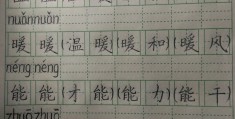 nuǎnnuǎn
暖 暖(温 暖)(暖 和)(暖 风)
néng néng
能 能(才 能)(能 力)(能 干)
zhuōzhuō